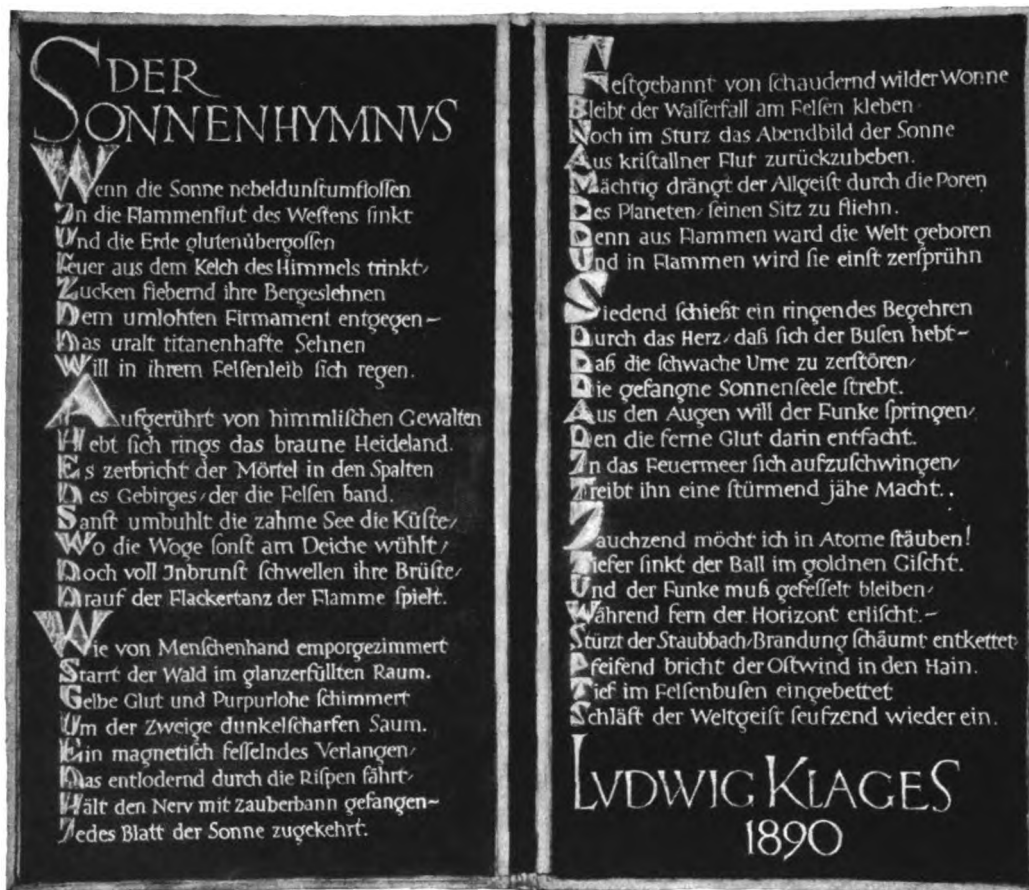 DER
SONNENHYMNVS
Wenn die Sonne nebeldunſtumfloſſen
In die Flammenflut des Weſtens ſinkt
Und die Erde glutenübergoſſen
Feuer aus dem Kelch des Himmels trinkt,
Zucken fiebernd ihre Bergeslehnen
Dem umlohten Firmament entgegen –
Das uralt titanenhafte Sehnen
Will in ihrem Felſenleib ſich regen.
Aufgerührt von himmliſchen Gewalten
Hebt ſich rings das braune Heideland.
Es zerbricht der Mörtel in den Spalten
Des Gebirges, der die Felſen band.
Sanft umbuhlt die zahme See die Küſte,
Wo die Woge ſonſt am Deiche wühlt,
Doch voll Inbrunſt ſchwellen ihre Brüſte,
Drauf der Flackertanz der Flamme ſpielt.
Wie von Menſchenhand emporgezimmert
Starrt der Wald im glanzerfüllten Raum.
Gelbe Glut und Purpurlohe ſchimmert
Um der Zweige dunkelſcharfen Saum.
Ein magnetiſch feſſelndes Verlangen,
Das entlodernd durch die Riſpen fährt,
Hält den Nerv mit Zauberbann gefangen –
Jedes Blatt der Sonne zugekehrt.
Feſtgebannt von ſchaudernd wilder Wonne
Bleibt der Waſſerfall am Felſen kleben
Noch im Sturz das Abendbild der Sonne
Aus kriſtallner Flut zurückzubeben.
Mächtig drängt der Allgeiſt durch die Poren
Des Planeten, ſeinen Sitz zu fliehn.
Denn aus Flammen ward die Welt geboren
Und in Flammen wird ſie einſt zerſprühn
Siedend ſchießt ein ringendes Begehren
Durch das Herz, daß ſich der Buſen hebt –
Daß die ſchwache Urne zu zerſtören,
Die gefangne Sonnenſeele ſtrebt.
Aus den Augen will der Funke ſpringen,
Den die ferne Glut darin entfacht.
In das Feuermeer ſich aufzuſchwingen,
Treibt ihn eine ſtürmend jähe Macht..
Jauchzend möcht ich in Atome ſtäuben!
Tiefer ſinkt der Ball im goldnen Giſcht.
Und der Funke muß gefeſſelt bleiben,
Während fern der Horizont erliſcht. –
Stürzt der Staubbach, Brandung ſchäumt entkettet,
Pfeifend bricht der Oſtwind in den Hain.
Tief im Felſenbuſen eingebettet
Schläft der Weltgeiſt ſeufzend wieder ein.
LVDWIG KLAGES
1890